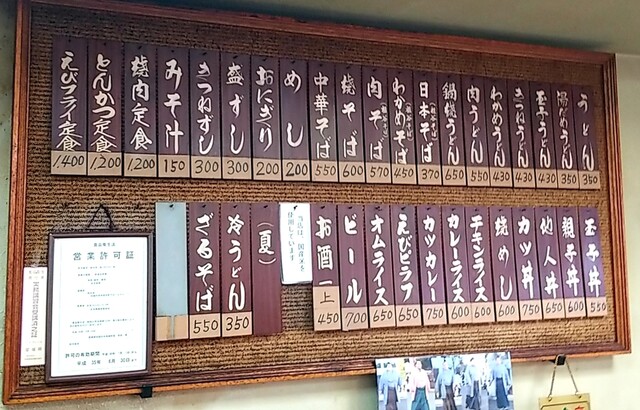 うどん 350
湯だめうどん 350
玉子うどん 430
きつねうどん 430
わかめうどん 430
肉うどん 550
鍋焼うどん 650
日本そば 370
わかめそば 450
肉そば 570
焼そば 600
中華そば 550
めし 200
おにぎり 200
盛ずし 300
きつねずし 300
みそ汁 150
焼肉定食 1,200
とんかつ定食 1,200
えびフライ定食 1,400
玉子丼 550
親子丼 600
他人丼 650
カツ丼 750
焼めし 600
チキンライス 600
カレーライス 600
カツカレー 750
えびピラフ 650
オムライス 650
ビール 700
お酒 上 450
当店は、国産米を
使用しています
(夏)
冷うどん 350
ざるそば 550
営業許可証